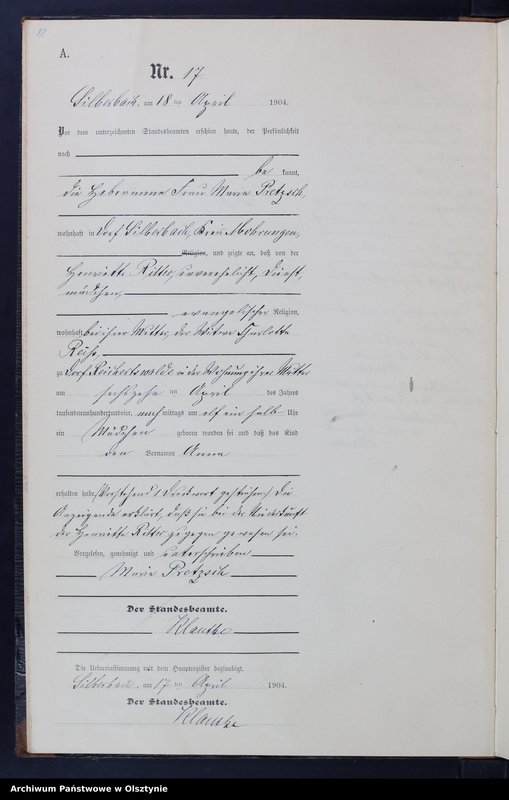 A.
Nr. 17
Silberbach, am 18 ten April 1904.
Vor dem unterzeichneten Standesbeamten erschien heute, der Persönlichkeit
nach
be kannt,
die Hebamme Frau Marie Pretzsch,
wohnhaft in Dorf Silberbach, Kreis Mohrungen,
Religion, und zeigte an, daß von der
Henriette Ritter, unverehelicht, Dienst,
mädchen,
evangelischer Religion,
wohnhaft bei ihrer Mutter, der Witwe Charlotte
zu Dorf Reichertswalde in der Wohnung ihrer Mutter
am sechszehn ten April des Jahres
tausendneunhundertundvier, nach mittags um elf ein halb Uhr
ein Mädchen geboren worden sei und daß das Kind
den Vornamen Anna
erhalten habe. Vorstehend 1 Druckwort gestrichen. Die
Anzeigende erklärt, daß sie bei der Niederkunft
der Henriette Ritter zugegen gewesen sei.
Vorgelesen, genehmigt und unterschrieben
Marie Pretzsch
Der Standesbeamte.
Klautke
Die Uebereinstimmung mit dem Hauptregister beglaubigt.
Silberbach, am 17 ten April 1904.
Der Standesbeamte.
Klautke
Archiwum Państwowe w Olsztynie